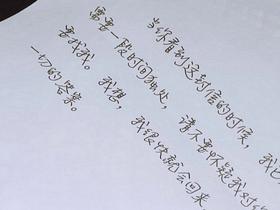 当你看到这封信的时候,我
需要一段时间独处,请不要怀疑我对你
要找我。我想,我很快就会回来
一切的答案。